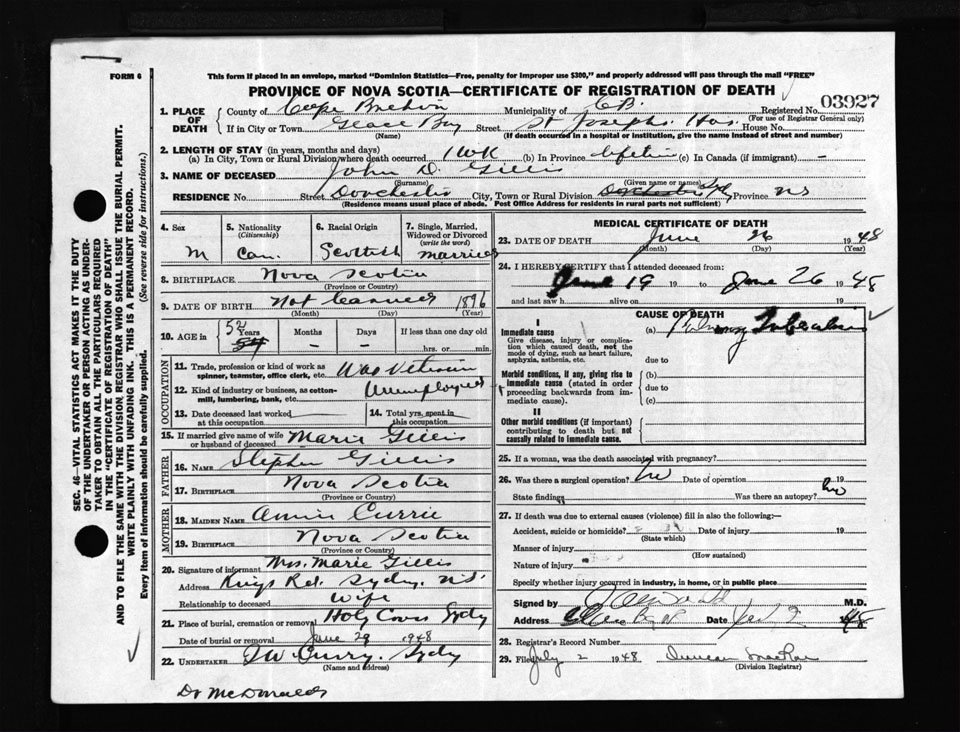 FORM 6
This form if placed in an envelope, marked "Dominion Statistics—Free, penalty for improper use $300," and properly addressed will pass through the mail "FREE"
PROVINCE OF NOVA SCOTIA—CERTIFICATE OF REGISTRATION OF DEATH
1. PLACE OF DEATH County of Cape Breton Municipality of C.B. Registered No. 03927
(For use of Registrar General only)
If in City or Town Glace Bay Street St Josephs Hos. House No.
(Name) (If death occurred in a hospital or institution, give the name instead of street and number)
2. LENGTH OF STAY (in years, months and days)
(a) In City, Town or Rural Division where death occurred 1 WK (b) In Province lifetime (c) In Canada (if immigrant) -
3. NAME OF DECEASED John D. Gillis
(Surname) (Given name or names)
RESIDENCE No. Street Dorchester City, Town or Rural Division Dorchester Sydy Province NS
(Residence means usual place of abode. Post Office Address for residents in rural parts not sufficient)
4. Sex M
5. Nationality (Citizenship) Can.
6. Racial Origin Scottish
7. Single, Married, Widowed or Divorced (write the word) married
8. BIRTHPLACE Nova Scotia
(Province or County)
9. DATE OF BIRTH 1896
(Month) (Day) (Year)
10. AGE in 52 Years Months Days If less than one day old
- - hrs. or min.
OCCUPATION
11. Trade, profession or kind of work as spinner, teamster, office clerk, etc. War Veteran
12. Kind of industry or business, as cotton-mill, lumbering, bank, etc. Unemployed
13. Date deceased last worked at this occupation
14. Total yrs. spent in this occupation
15. If married give name of wife or husband of deceased Marie Gillis
FATHER
16. NAME Stephen Gillis
17. BIRTHPLACE Nova Scotia
(Province or Country)
MOTHER
18. MAIDEN NAME Annie Currie
19. BIRTHPLACE Nova Scotia
(Province or Country)
20. Signature of informant Mrs. Marie Gillis
Address Kings Rd. Sydney. N.S.
Relationship to deceased Wife
21. Place of burial, cremation or removal Holy Cross Sydy
Date of burial or removal June 29 1948
22. UNDERTAKER Sydy
(Name and Address)
Dr McDonalds
MEDICAL CERTIFICATE OF DEATH
23. DATE OF DEATH June 26 1948
(Month) (Day) (Year)
24. I HEREBY CERTIFY that I attended deceased from:
June 19 19 to June 26 1948
and last saw h alive on 19
CAUSE OF DEATH
I
Immediate cause (a) Pulmonary Tuberculosis
Give disease, injury or complication which caused death, not the mode of dying, such as heart failure, asphyxia, asthenia, etc.
due to
Morbid conditions, if any, giving rise to immediate cause (stated in order proceeding backwards from immediate cause)
(b)
due to
(c)
II
Other morbid conditions (if important) contributing to death but not causally related to immediate cause.
25. If a woman, was the death associated with pregnancy?
26. Was there a surgical operation? No Date of operation 19
State findings Was there an autopsy? No
27. If death was due to external causes (violence) fill in also the following:—
Accident, suicide or homicide? Date of injury 19
(State which)
Manner of injury
(How sustained)
Nature of injury
Specify whether injury occurred in industry, in home, or in public place
Signed by M.D.
Address Date 1948
28. Registrar's Record Number
29. Filed July 2 1948 Duncan MacRae
(Division Registrar)
SEC. 46—VITAL STATISTICS ACT MAKES IT THE DUTY
OF THE UNDERTAKER OR PERSON ACTING AS UNDER-
TAKER TO OBTAIN ALL THE PARTICULARS REQUIRED
IN THE "CERTIFICATE OF REGISTRATION OF DEATH"
AND TO FILE THE SAME WITH THE DIVISION REGISTRAR WHO SHALL ISSUE THE BURIAL PERMIT.
WRITE PLAINLY WITH UNFADING INK. THIS IS A PERMANENT RECORD.
Every item of information should be carefully supplied. (See reverse side for instructions.)